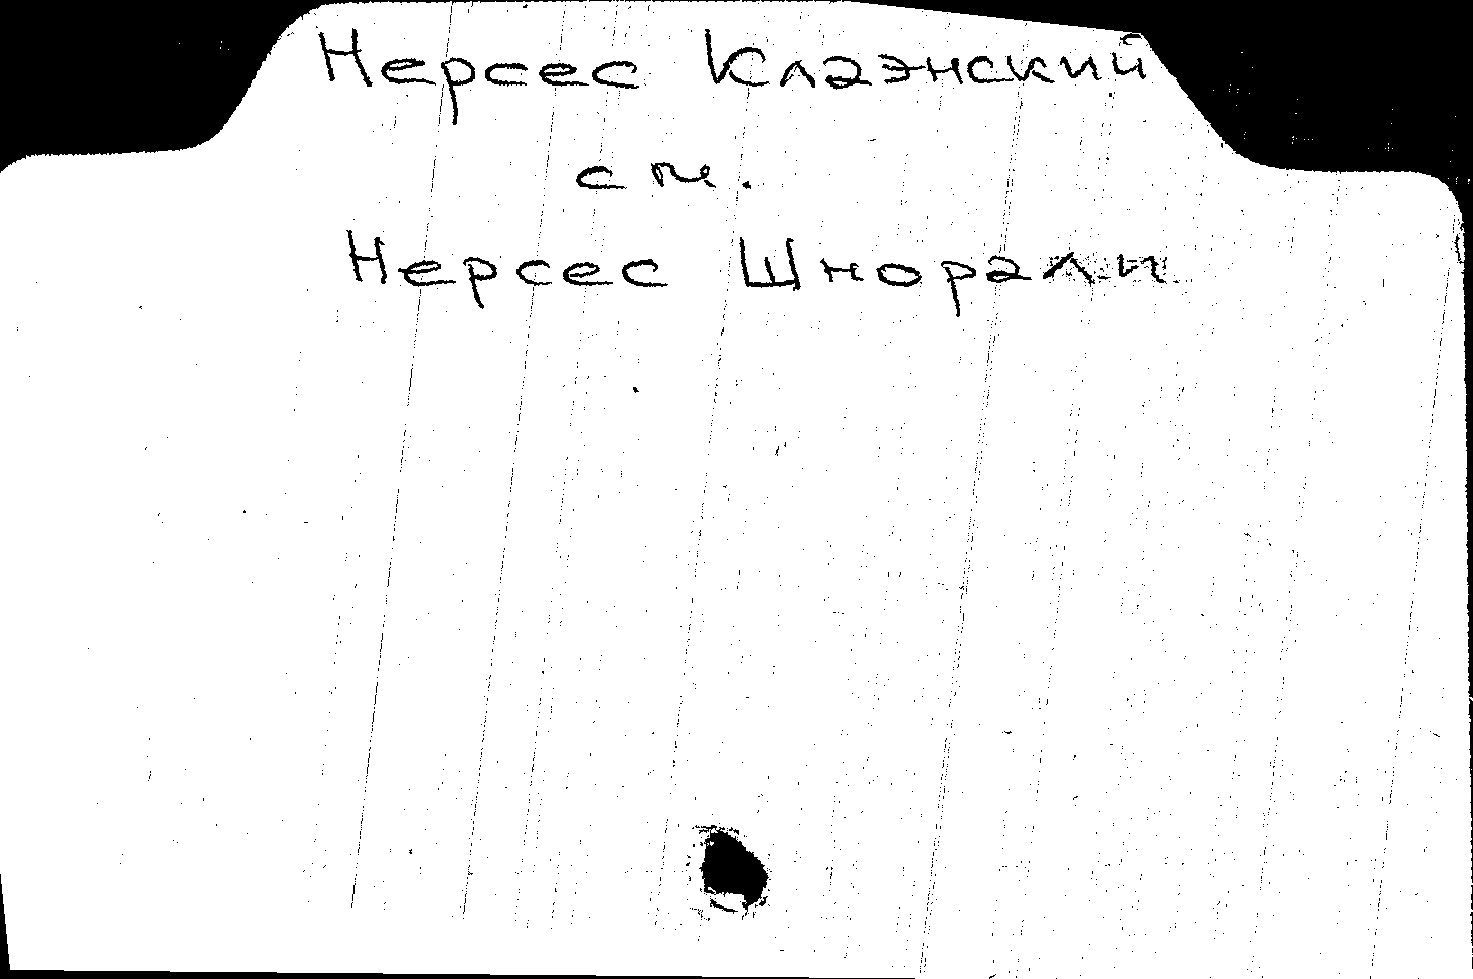 Нерсес Клаэнский
см.
Нерсес Шнорали